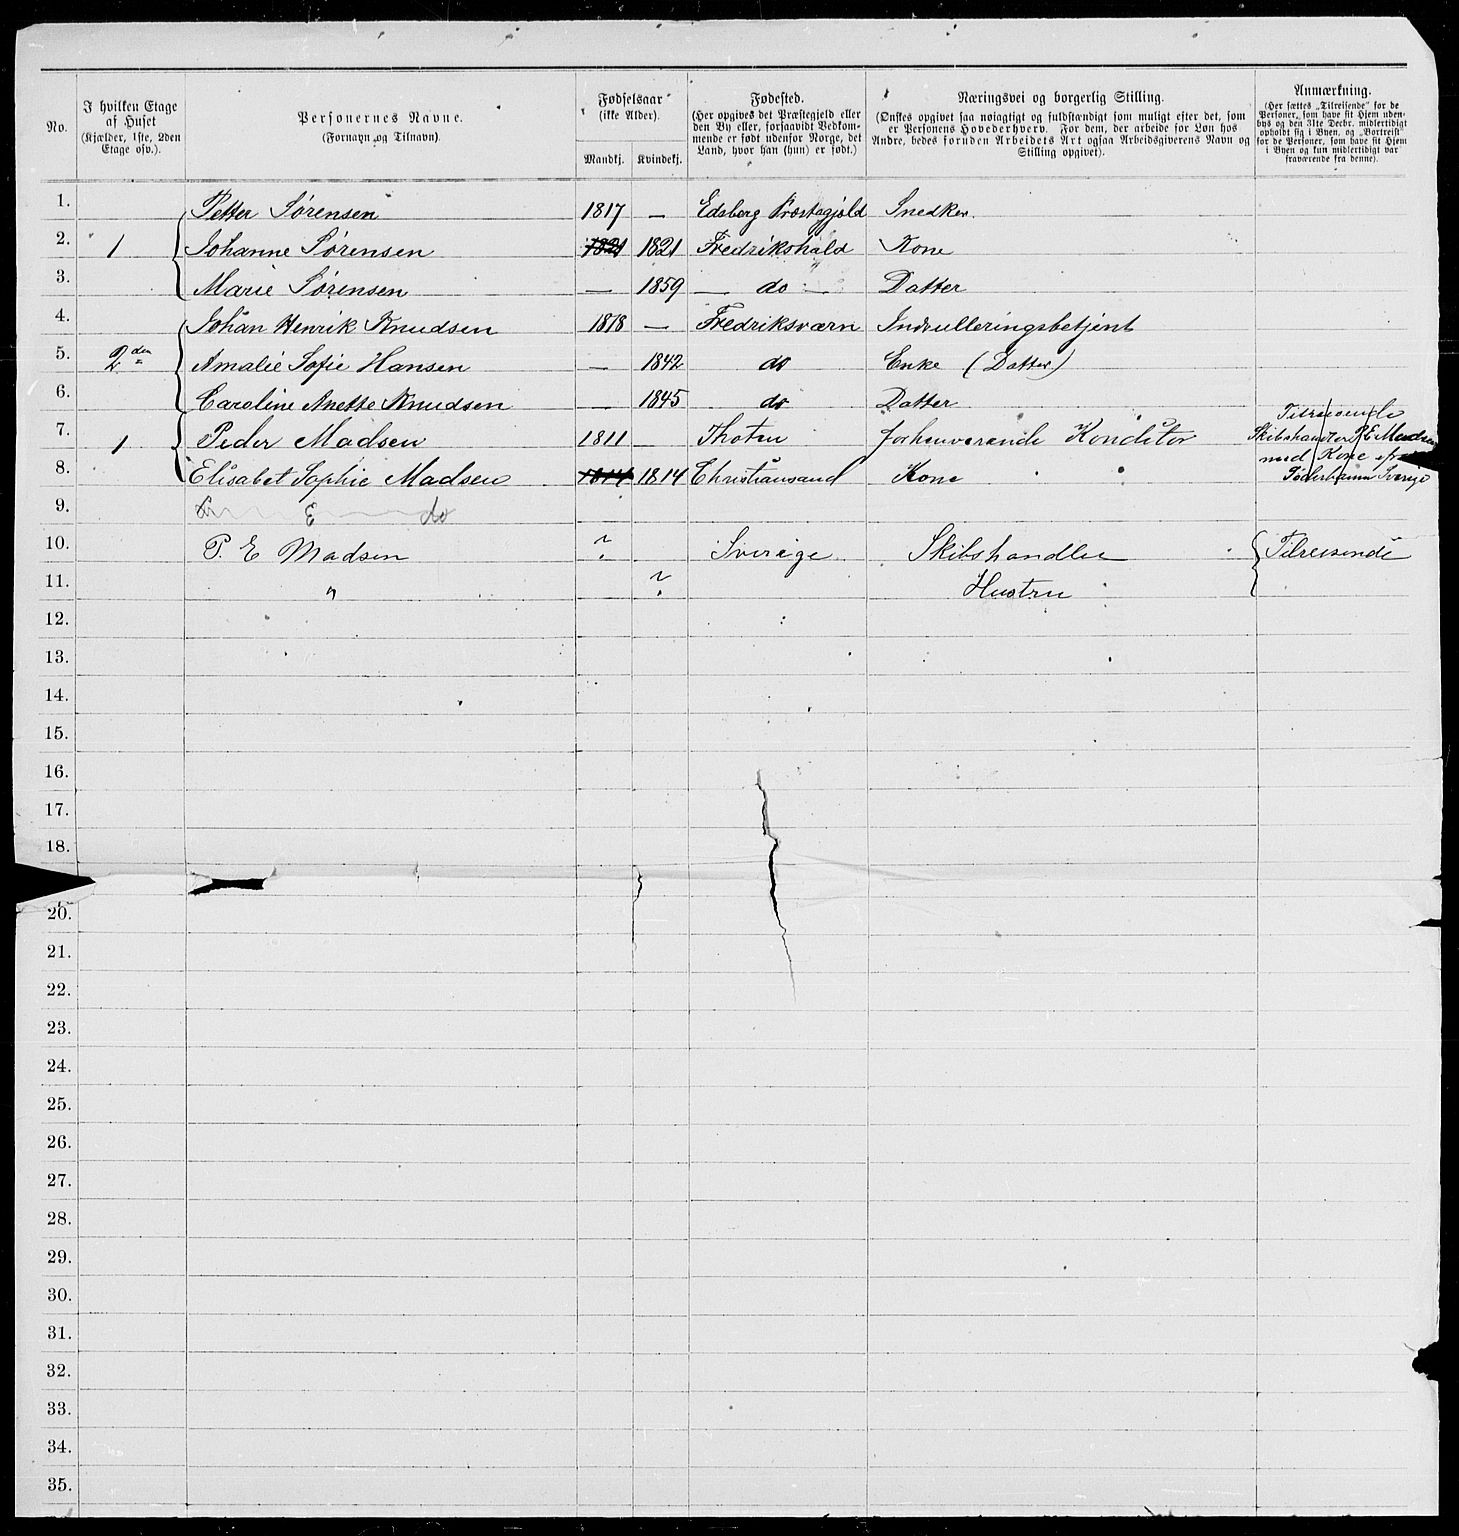 No. I hvilken Etage af Huset (Kjælder, 1ste, 2den Etage osv.). Personernes Navne. (Fornavn og Tilnavn). Fødselsaar (ikke Alder). Mandkj. Kvindekj. Fødested. (Her opgives det Præstegjeld eller den By eller, forsaavidt Vedkommende er født udenfor Norge, det Land, hvor han (hun) er født.) Næringsvei og borgerlig Stilling. (Ønskes opgivet saa nøiagtigt og fuldstændigt som muligt efter det, som er Personens Hovederhverv. For dem, der arbeide for Løn hos Andre, bedes foruden Arbeidets Art ogsaa Arbeidsgiverens Navn og Stilling opgivet). Anmærkning. (Her sættes „Tilreisende" for de Personer, som have sit Hjem udenbys og den 31te Decbr. midlertidigt opholdt sig i Byen, og „Bortreist" for de Personer, som have sit Hjem i Byen og kun midlertidigt var fraværende fra denne).
1. Petter Sørensen 1817 — Edsberg Præstegjeld Snedker.
2. 1 Johanne Sørensen 1821 1821 Fredrikshald Kone
3. Marie Sørensen — 1859 — do — Datter
4. Johan Henrik Knudsen 1818 — Fredriksværn Indrulleringsbetjent
5. 2den Amalie Sofie Hansen — 1842 do Enke (Datter)
6. Caroline Anette Knudsen — 1845 do Datter
7. 1 Peder Madsen 1811 — Thoten forhenværende Konditor Tilreisende Skibshandler P E Madsen
8. Elisabet Sophie Madsen 1814 1814 Christiansand Kone med Kone fra Söderhamn Sverige
9. E do
10. P. E Madsen ? Sverige Skibshandler Tilreisende
11. " ? Hustru
12.
13.
14.
15.
16.
17.
18.
20.
21.
22.
23.
24.
25.
26.
27.
28.
29.
30.
31.
32.
33.
34.
35.